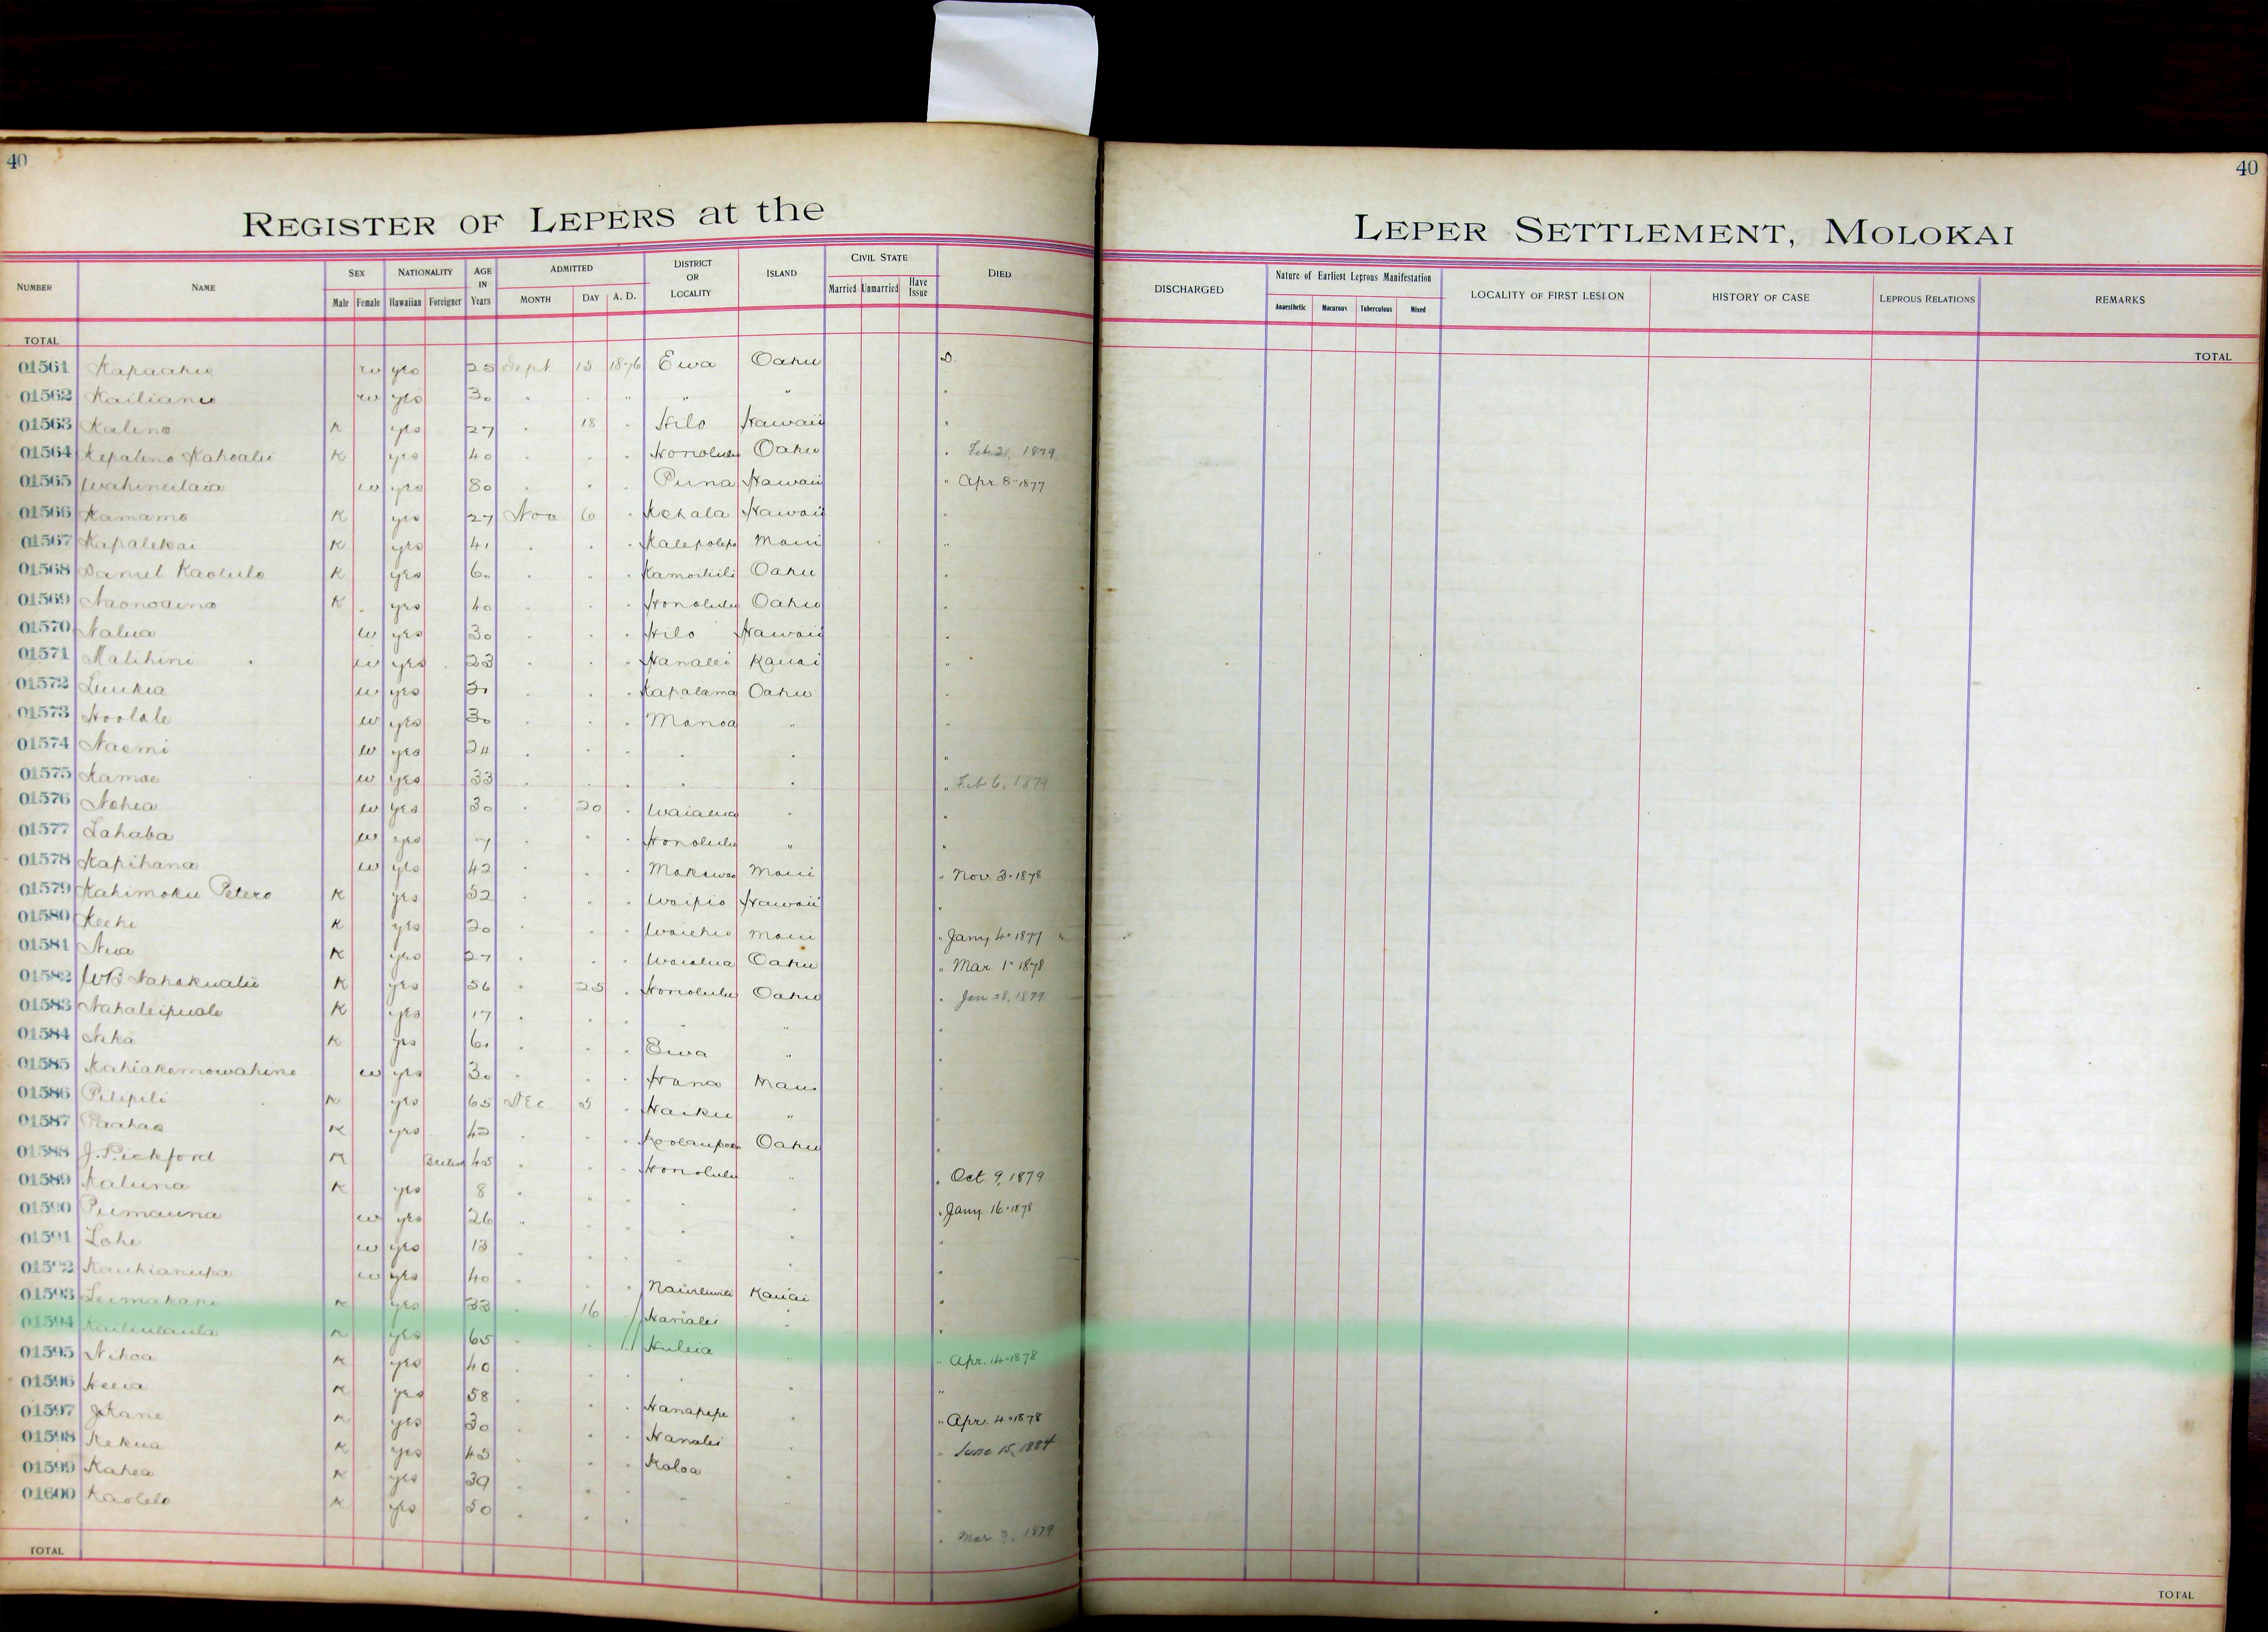 40
40
REGISTER OF LEPERS at the LEPER SETTLEMENT, MOLOKAI
NUMBER NAME SEX Male Female NATIONALITY Hawaiian Foreigner AGE IN Years ADMITTED MONTH DAY A. D. DISTRICT OR LOCALITY ISLAND CIVIL STATE Married Unmarried Have Issue DIED
DISCHARGED Nature of Earliest Leprous Manifestation Anaesthetic Macurous Tuberculous Mixed LOCALITY OF FIRST LESION HISTORY OF CASE LEPROUS RELATIONS REMARKS
TOTAL TOTAL
01561 Kapaahu w yes 25 Sept 15 1876 Ewa Oahu D.
01562 Kailianu w yes 30 " " " " " "
01563 Kalino K yes 27 " 18 " Hilo Hawaii "
01564 Kepalino Kahoalii K yes 40 " " " Honolulu Oahu " Feb 21, 1879
01565 Wahineilaia w yes 80 " " " Puna Hawaii " Apr. 8 - 1877
01566 Kamamo K yes 27 Nov 6 " Kohala Hawaii "
01567 Kapalekai K yes 41 " " " Kalepolepo Maui "
01568 Daniel Kaolulo K yes 60 " " " Kamoiliili Oahu "
01569 Naonoaina K yes 40 " " " Honolulu Oahu "
01570 Nalua w yes 30 " " " Hilo Hawaii "
01571 Malihini w yes 23 " " " Hanalei Kauai "
01572 Luukia w yes " " " Kapalama Oahu "
01573 Hoolale w yes 30 " " " Manoa " "
01574 Naomi w yes 24 " " " " " "
01575 Kamae w yes 33 " " " " " " Feb 6, 1879
01576 Nohea w yes 30 " 20 " Waialua " "
01577 Lahaba w yes 7 " " " Honolulu " "
01578 Kapihana w yes 42 " " " Makawao Maui " Nov. 3 - 1878
01579 Kahimoku Petero K yes 52 " " " Waipio Hawaii "
01580 Keehi K yes 20 " " " Waiehu Maui " Jany 4 - 1877 "
01581 Nua K yes 27 " " " Waialua Oahu " Mar. 1 - 1878
01582 WB Nahokualii K yes 56 " 25 " Honolulu Oahu " Jan 28, 1879
01583 Nahaleipuole K yes 17 " " " " " "
01584 Nika K yes 61 " " " Ewa " "
01585 Kahiakemowahine w yes 30 " " " Hana Maui "
01586 Pilipili K yes 65 Dec 5 " Haiku " "
01587 Paahao K yes 42 " " " Koolaupoko Oahu "
01588 J. Pickford K British 45 " " " Honolulu " " Oct. 9, 1879
01589 Kaluna K yes 8 " " " " " " Jany. 16 - 1878
01590 Puimauna w yes 26 " " " " " "
01591 Lohe w yes 13 " " " " "
01592 Kauhianupa w yes 40 " " " Nawiliwili Kauai "
01593 Leimakani K yes 33 " 16 " Hanalei " "
01594 K yes 65 " " Huleia " " Apr. 14 - 1878
01595 Nihoa K yes 40 " " " " " "
01596 Heeia K yes 58 " " " Hanapepe " " Apr. 4 - 1878
01597 J Kane K yes 30 " " " Hanalei " " June 15, 1884
01598 Kekua K yes 45 " " " Koloa " "
01599 Kahea K yes 39 " " " " " "
01600 Kaolelo K yes 50 " " " " Mar 3, 1879
TOTAL TOTAL